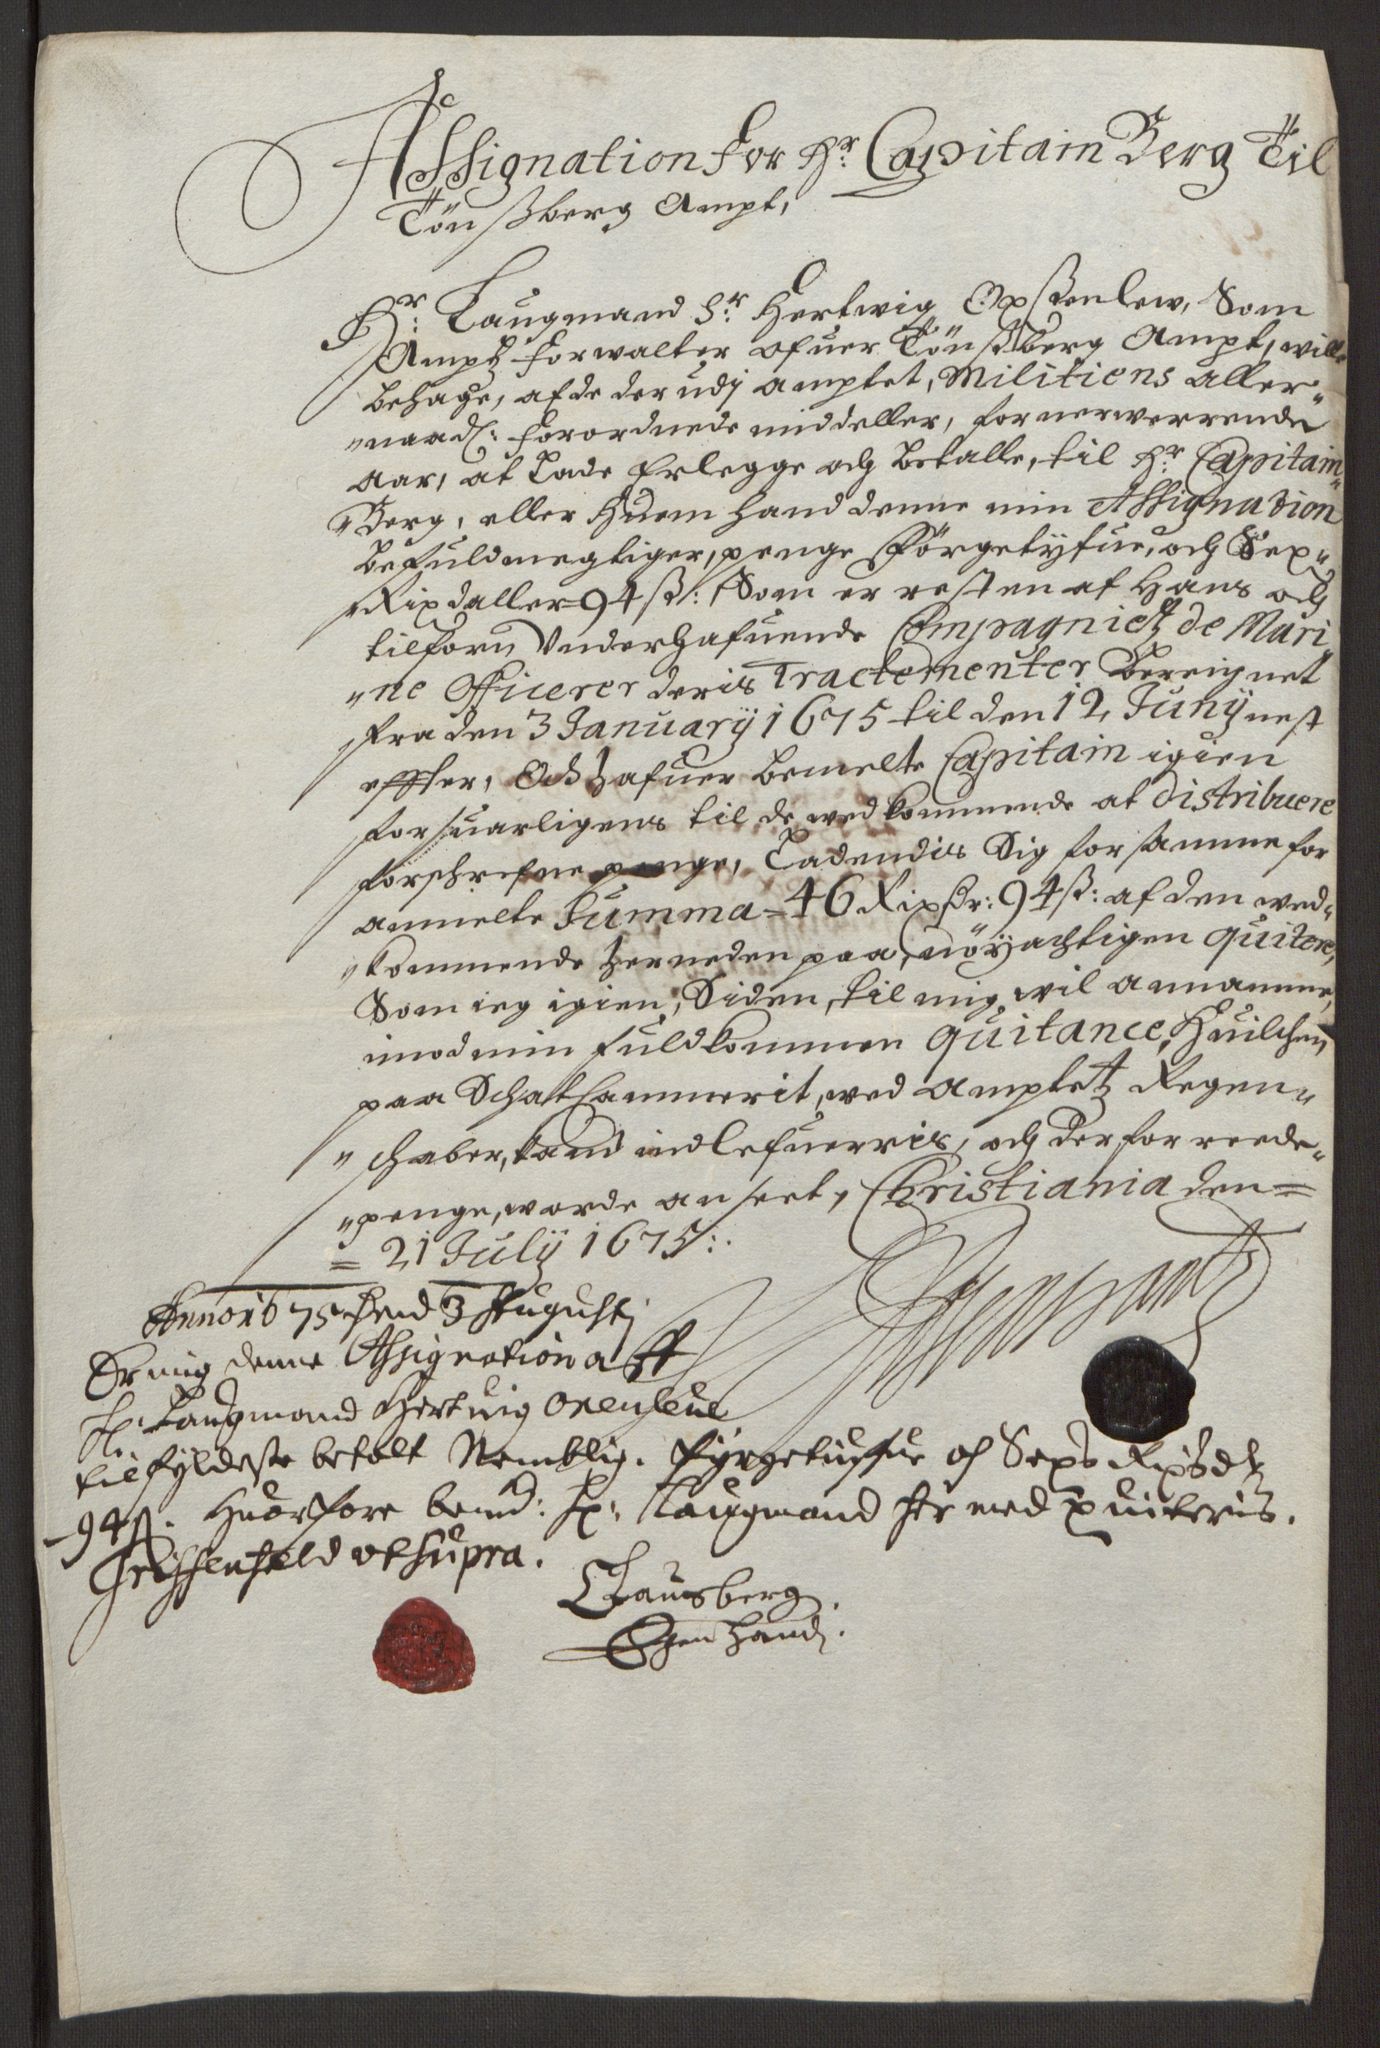 Assignation for Hr: Capitain Berg Til
Tönßberg Ampt,
Hr: Laugmand Sr: Hertwig Oxßenlew, Som
Amptz forwalter ofuer Tönßberg Ampt, wille
behage, af de der udj amptet, Militiens aller-
"naad: forordnede middeller, for nerwerrende
aar, at Lade Erlegge och betalle, til Hr: Capitain
"Berg, eller huem hand denne min Assignation
befuldmegtiger, penge Förgetyfue, och Sex-
"Rixdaller 94 ß: Som er resten af Hans och
tilforn Underhafuende Compagnietz de Mari
"ne Officerer deris Tractementer Bereignet
fra den 3 January 1675 til den 12 Juny nest
effter, Och hafuer bemelte Capitain igien
forsuarligens til de vedkommende at distribuere
forschrefne penge, Ladendis Sig for samme for
anmelte Summa = 46 Rixdr: 94 ß: af den ved-
"kommende herneden paa, nöyachtigen quitere,
Som ieg igien, Siden, til mig vil annamme,
imod min fuldkommen quitance, Huilchen
paa Schatkammerit, ved amptetz Regen-
"schaber, kand indlefuerris, och derfor reede-
"penge, worde anseet, Christiania den=
= 21 July 1675:
Anno 1675 dend 3 Augustj
Er mig denne Assignation aff
Hr: Laugmand Hertuig Oxenleue
tilfyldeste betalt Nemblig. Fyrgetiufue och Sex Rixdr
94 ß. Huorfore bemd: Hr: Laugmand her med quiteris.
Griffenfeld ut supra.
Clausberg
Egen Hand.